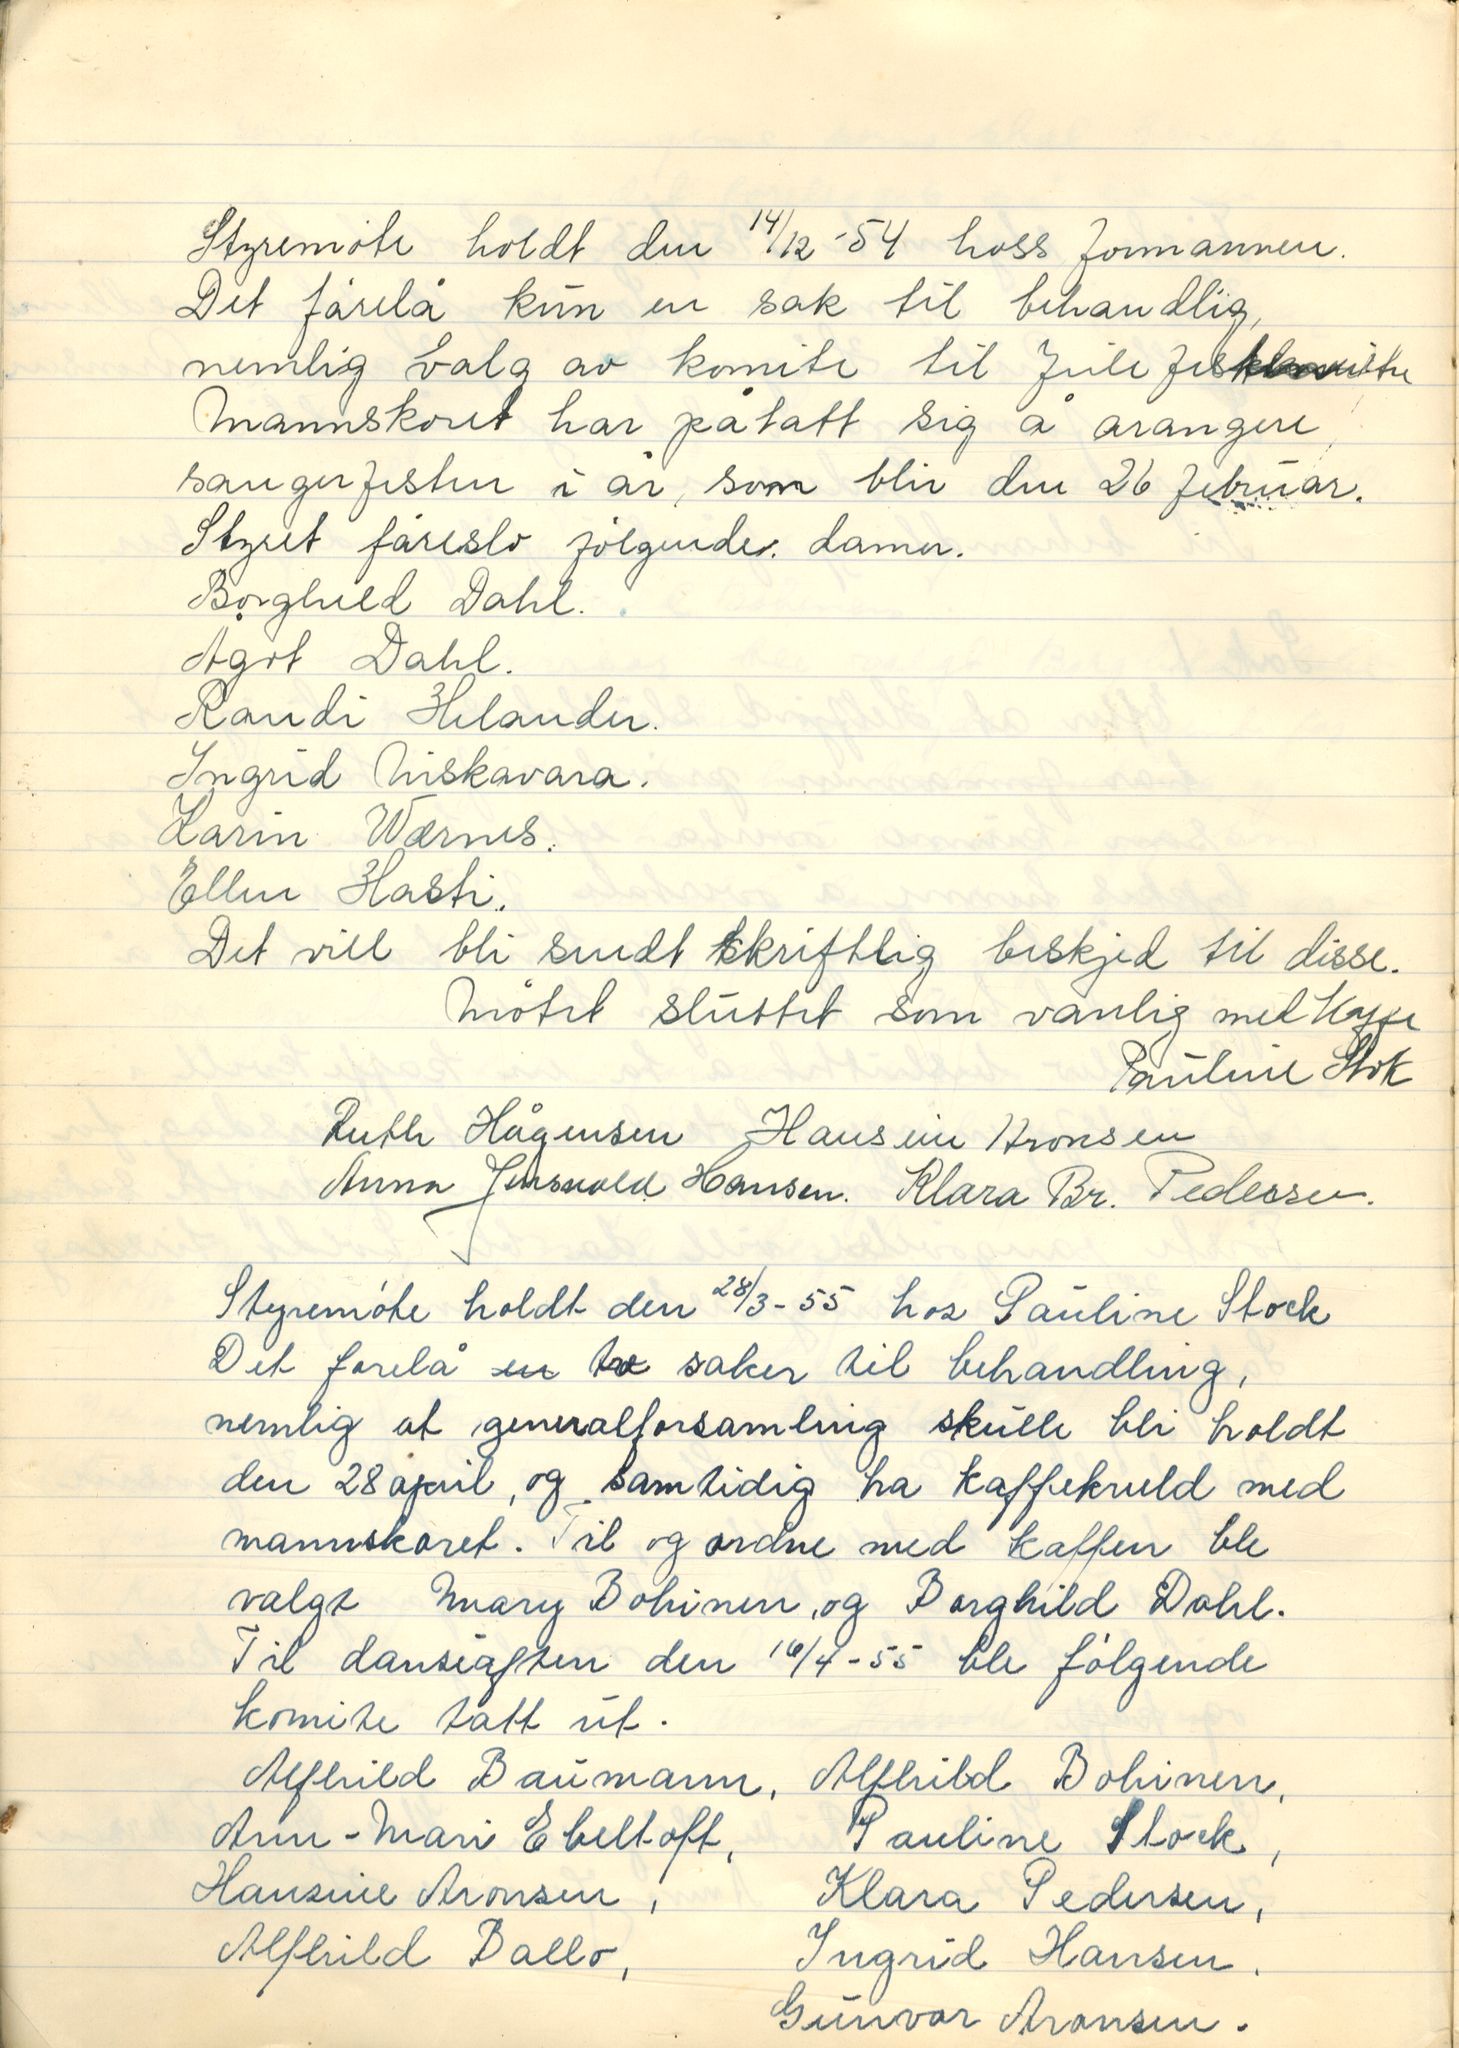 Styremöte holdt den 14/12-54 hoss formannen.
Det fårelå kun en sak til behandlig,
nemlig valg av komite til Jule fest
Mannskoret har påtatt sig å arangere
sangerfesten i år, som blir den 26 februar.
Styret fåreslo følgende. damer.
Borghild Dahl.
Agot Dahl.
Randi Helander.
Ingrid Niskavara.
Karin Wærnes.
Ellen Hasti.
Det vill bli sendt skriftlig beskjed til disse.
Mötet sluttet som vanlig med Kaffe
Pauline Stok
Ruth Hågensen Hansine Aronsen
Anna Jensvold Hansen. Klara Br. Pedessen.
Styremöte holdt den 28/3-55 hos Pauline Stock
Det forelå en to saker til behandling,
nemlig at generalforsamling skulle bli holdt
den 28 april, og samtidig ha kaffekveld med
mannskoret. Til og ordne med kaffen ble
valgt Mary Bohinen, og Borghild Dahl.
Til danseaften den 16/4-55 ble fölgende
komite tatt ut.
Alfhild Baumann, Alfhild Bohinen,
Ann-Mari Ebeltoft, Pauline Stock,
Hansine Aronsen, Klara Pedersen,
Alfhild Ballo, Ingrid Hansen.
Gunvor Aronsen.